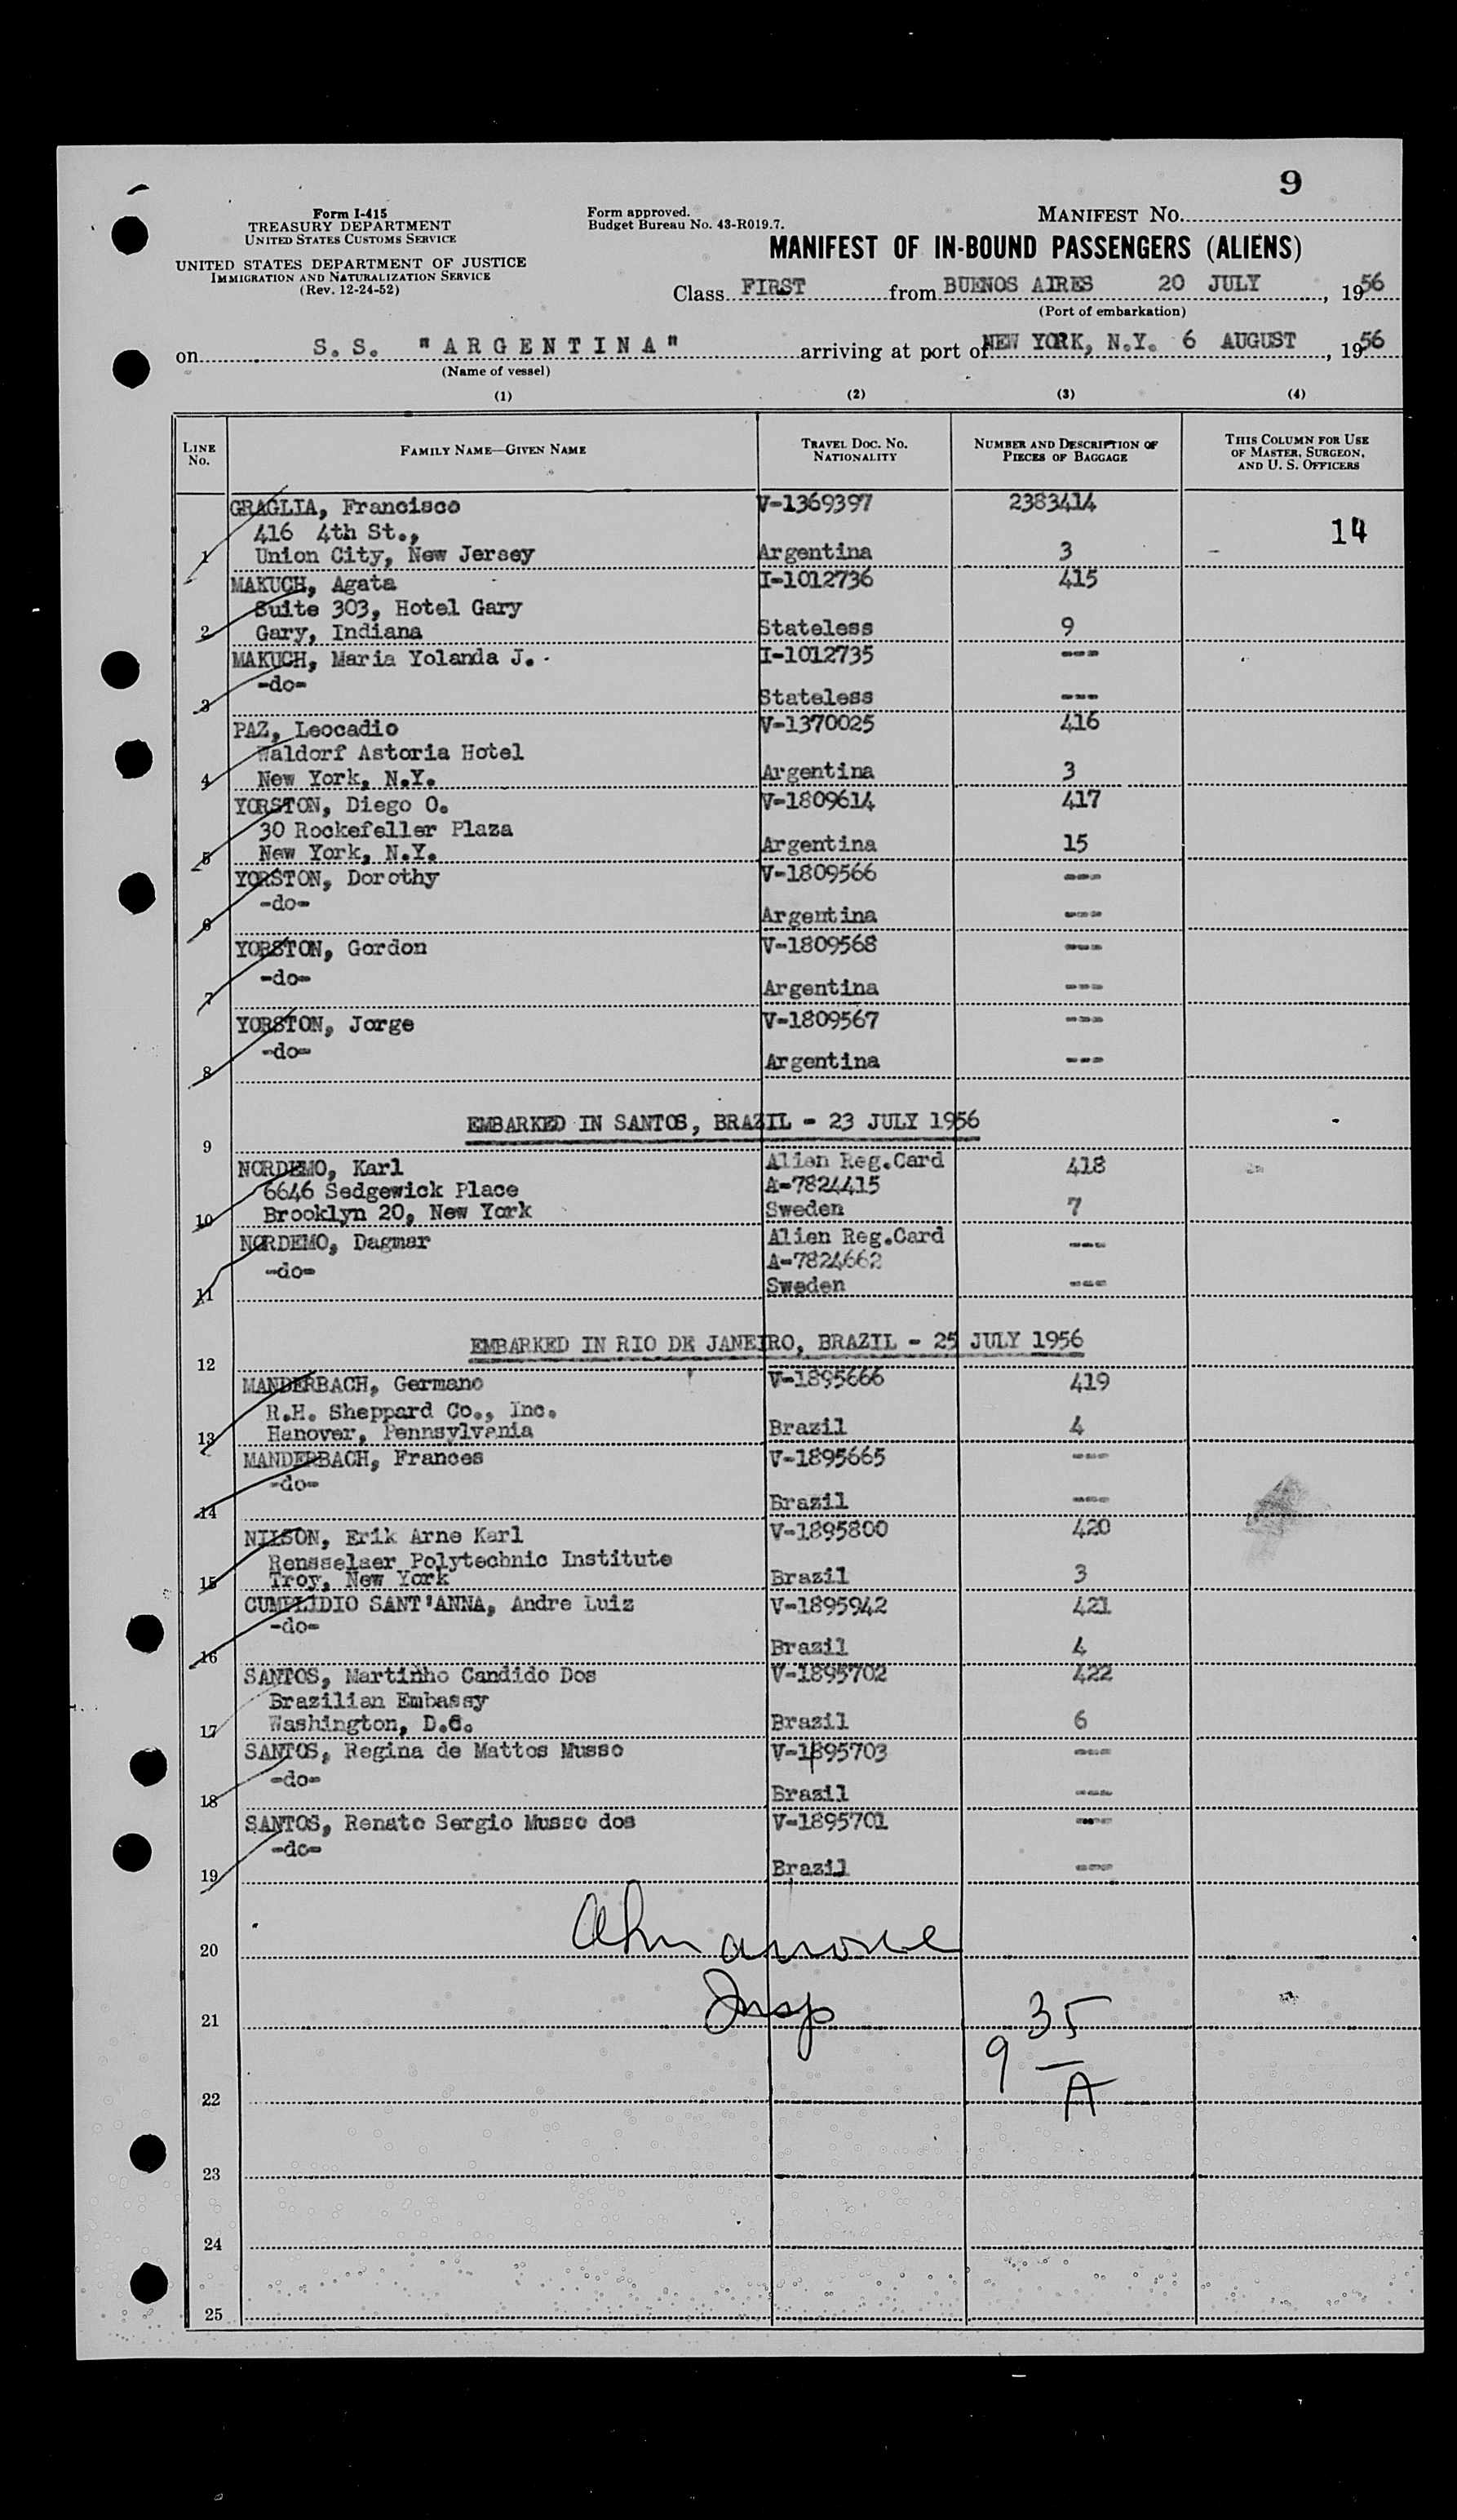 9
Form I-415
TREASURY DEPARTMENT
UNITED STATES CUSTOMS SERVICE
UNITED STATES DEPARTMENT OF JUSTICE
IMMIGRATION AND NATURALIZATION SERVICE
(Rev. 12-24-52)
Form approved.
Budget Bureau No. 43-R019.7.
MANIFEST NO.
MANIFEST OF IN-BOUND PASSENGERS (ALIENS)
Class FIRST from BUENOS AIRES 20 JULY, 1956
(Port of embarkation)
on S. S. "ARGENTINA" arriving at port of NEW YORK, N.Y. 6 AUGUST, 1956
(Name of vessel)
(1) (2) (3) (4)
LINE No. FAMILY NAME—GIVEN NAME TRAVEL DOC. NO. NATIONALITY NUMBER AND DESCRIPTION OF PIECES OF BAGGAGE THIS COLUMN FOR USE OF MASTER, SURGEON, AND U. S. OFFICERS
GRAGLIA, Francisco V-1369397 2383414
416 4th St., 14
1 Union City, New Jersey Argentina 3
MAKUCH, Agata I-1012736 415
Suite 303, Hotel Gary
2 Gary, Indiana Stateless 9
MAKUCH, Maria Yolanda J. I-1012735 ---
-do-
3 Stateless ---
PAZ, Leocadio V-1370025 416
Waldorf Astoria Hotel
4 New York, N.Y. Argentina 3
YORSTON, Diego O. V-1809614 417
30 Rockefeller Plaza
5 New York, N.Y. Argentina 15
YORSTON, Dorothy V-1809566 ---
-do-
6 Argentina ---
YORSTON, Gordon V-1809568 ---
-do-
7 Argentina ---
YORSTON, Jorge V-1809567 ---
-do-
8 Argentina ---
EMBARKED IN SANTOS, BRAZIL - 23 JULY 1956
9
NORDEMO, Karl Alien Reg.Card 418
6646 Sedgewick Place A-7824415
10 Brooklyn 20, New York Sweden 7
NORDEMO, Dagmar Alien Reg.Card ---
-do- A-7824662
11 Sweden ---
EMBARKED IN RIO DE JANEIRO, BRAZIL - 25 JULY 1956
12
MANDERBACH, Germano V-1895666 419
R.H. Sheppard Co., Inc.
13 Hanover, Pennsylvania Brazil 4
MANDERBACH, Frances V-1895665 ---
-do-
14 Brazil ---
NILSON, Erik Arne Karl V-1895800 420
Rensselaer Polytechnic Institute
15 Troy, New York Brazil 3
CUMPLIDIO SANT'ANNA, Andre Luiz V-1895942 421
-do-
16 Brazil 4
SANTOS, Martinho Candido Dos V-1895702 422
Brazilian Embassy
17 Washington, D.C. Brazil 6
SANTOS, Regina de Mattos Musso V-1895703 ---
-do-
18 Brazil ---
SANTOS, Renato Sergio Musso dos V-1895701 ---
-do-
19 Brazil ---
20
Insp
21 35
9 —
22 A
23
24
25